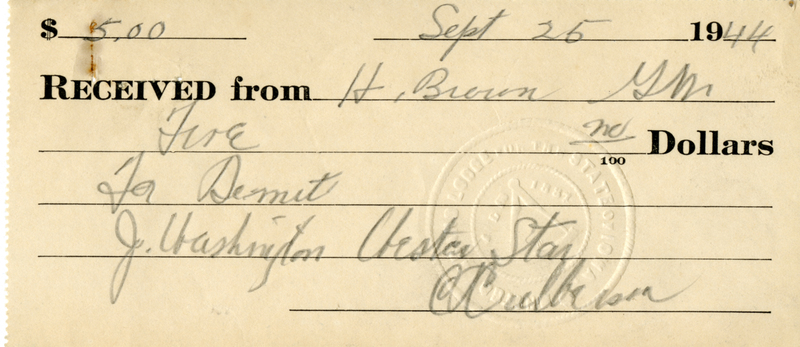 $ 5.00 Sept 25 1944
RECEIVED from H. Brown G.M.
Five no/100 Dollars
For Demit
J. Washington Western Star
C Culberson